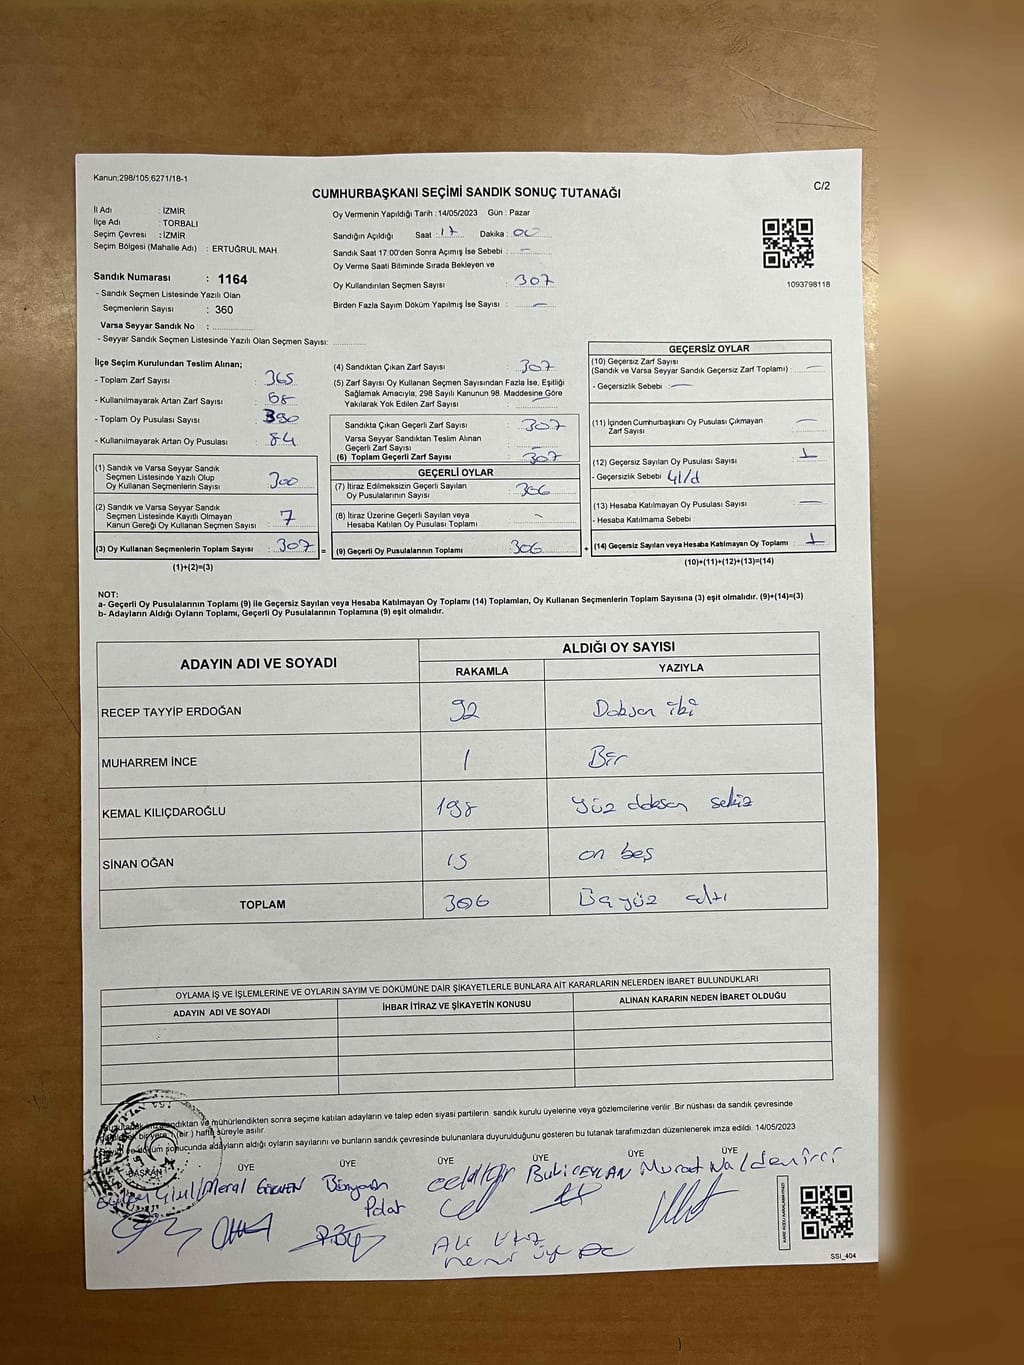 Kanun:298/105;6271/18-1
C/2
CUMHURBAŞKANI SEÇİMİ SANDIK SONUÇ TUTANAĞI
İl Adı : İZMİR
İlçe Adı : TORBALI
Seçim Çevresi : İZMİR
Seçim Bölgesi (Mahalle Adı) : ERTUĞRUL MAH
Sandık Numarası : 1164
- Sandık Seçmen Listesinde Yazılı Olan
Seçmenlerin Sayısı : 360
Varsa Seyyar Sandık No :
- Seyyar Sandık Seçmen Listesinde Yazılı Olan Seçmen Sayısı:
Oy Vermenin Yapıldığı Tarih :14/05/2023 Gün : Pazar
Sandığın Açıldığı Saat : 17 Dakika : 00
Sandık Saat 17:00'den Sonra Açımış İse Sebebi : -
Oy Verme Saati Bitiminde Sırada Bekleyen ve
Oy Kullandırılan Seçmen Sayısı : 307
Birden Fazla Sayım Döküm Yapılmış İse Sayısı : -
1093798118
İlçe Seçim Kurulundan Teslim Alınan;
- Toplam Zarf Sayısı : 365
- Kullanılmayarak Artan Zarf Sayısı :
- Toplam Oy Pusulası Sayısı :
- Kullanılmayarak Artan Oy Pusulası : 84
(1) Sandık ve Varsa Seyyar Sandık
Seçmen Listesinde Yazılı Olup
Oy Kullanan Seçmenlerin Sayısı : 300
(2) Sandık ve Varsa Seyyar Sandık
Seçmen Listesinde Kayıtlı Olmayan
Kanun Gereği Oy Kullanan Seçmen Sayısı : 7
(3) Oy Kullanan Seçmenlerin Toplam Sayısı : 307
(1)+(2)=(3)
(4) Sandıktan Çıkan Zarf Sayısı : 307
(5) Zarf Sayısı Oy Kullanan Seçmen Sayısından Fazla İse, Eşitliği
Sağlamak Amacıyla; 298 Sayılı Kanunun 98. Maddesine Göre
Yakılarak Yok Edilen Zarf Sayısı : -
Sandıkta Çıkan Geçerli Zarf Sayısı : 307
Varsa Seyyar Sandıktan Teslim Alınan
Geçerli Zarf Sayısı : -
(6) Toplam Geçerli Zarf Sayısı : 307
GEÇERLİ OYLAR
(7) İtiraz Edilmeksizin Geçerli Sayılan
Oy Pusulalarının Sayısı : 306
(8) İtiraz Üzerine Geçerli Sayılan veya
Hesaba Katılan Oy Pusulası Toplamı : -
= (9) Geçerli Oy Pusulalarının Toplamı : 306
GEÇERSİZ OYLAR
(10) Geçersiz Zarf Sayısı
(Sandık ve Varsa Seyyar Sandık Geçersiz Zarf Toplamı) : -
- Geçersizlik Sebebi : -
(11) İçinden Cumhurbaşkanı Oy Pusulası Çıkmayan
Zarf Sayısı : -
(12) Geçersiz Sayılan Oy Pusulası Sayısı : 1
- Geçersizlik Sebebi : 4l/d
(13) Hesaba Katılmayan Oy Pusulası Sayısı : -
- Hesaba Katılmama Sebebi :
+ (14) Geçersiz Sayılan veya Hesaba Katılmayan Oy Toplamı : 1
(10)+(11)+(12)+(13)=(14)
NOT:
a- Geçerli Oy Pusulalarının Toplamı (9) ile Geçersiz Sayılan veya Hesaba Katılmayan Oy Toplamı (14) Toplamları, Oy Kullanan Seçmenlerin Toplam Sayısına (3) eşit olmalıdır. (9)+(14)=(3)
b- Adayların Aldığı Oyların Toplamı, Geçerli Oy Pusulalarının Toplamına (9) eşit olmalıdır.
ADAYIN ADI VE SOYADI
ALDIĞI OY SAYISI
RAKAMLA YAZIYLA
RECEP TAYYİP ERDOĞAN 92 Doksan iki
MUHARREM İNCE 1 Bir
KEMAL KILIÇDAROĞLU 198 yüz doksan sekiz
SİNAN OĞAN 15 on beş
TOPLAM 306 Üç yüz altı
OYLAMA İŞ VE İŞLEMLERİNE VE OYLARIN SAYIM VE DÖKÜMÜNE DAİR ŞİKAYETLERLE BUNLARA AİT KARARLARIN NELERDEN İBARET BULUNDUKLARI
ADAYIN ADI VE SOYADI İHBAR İTİRAZ VE ŞİKAYETİN KONUSU ALINAN KARARIN NEDEN İBARET OLDUĞU
mühürlendikten sonra seçime katılan adayların ve talep eden siyasi partilerin sandık kurulu üyelerine veya gözlemcilerine verilir. Bir nüshası da sandık çevresinde
(bir) hafta süreyle asılır.
sonucunda adayların aldığı oyların sayılarını ve bunların sandık çevresinde bulunanlara duyurulduğunu gösteren bu tutanak tarafımızdan düzenlenerek imza edildi. 14/05/2023
BAŞKAN ÜYE ÜYE ÜYE ÜYE ÜYE ÜYE
Meral GÖKMEN Bünyamin Polat CEYLAN Murat Naldemirci
SSI_404